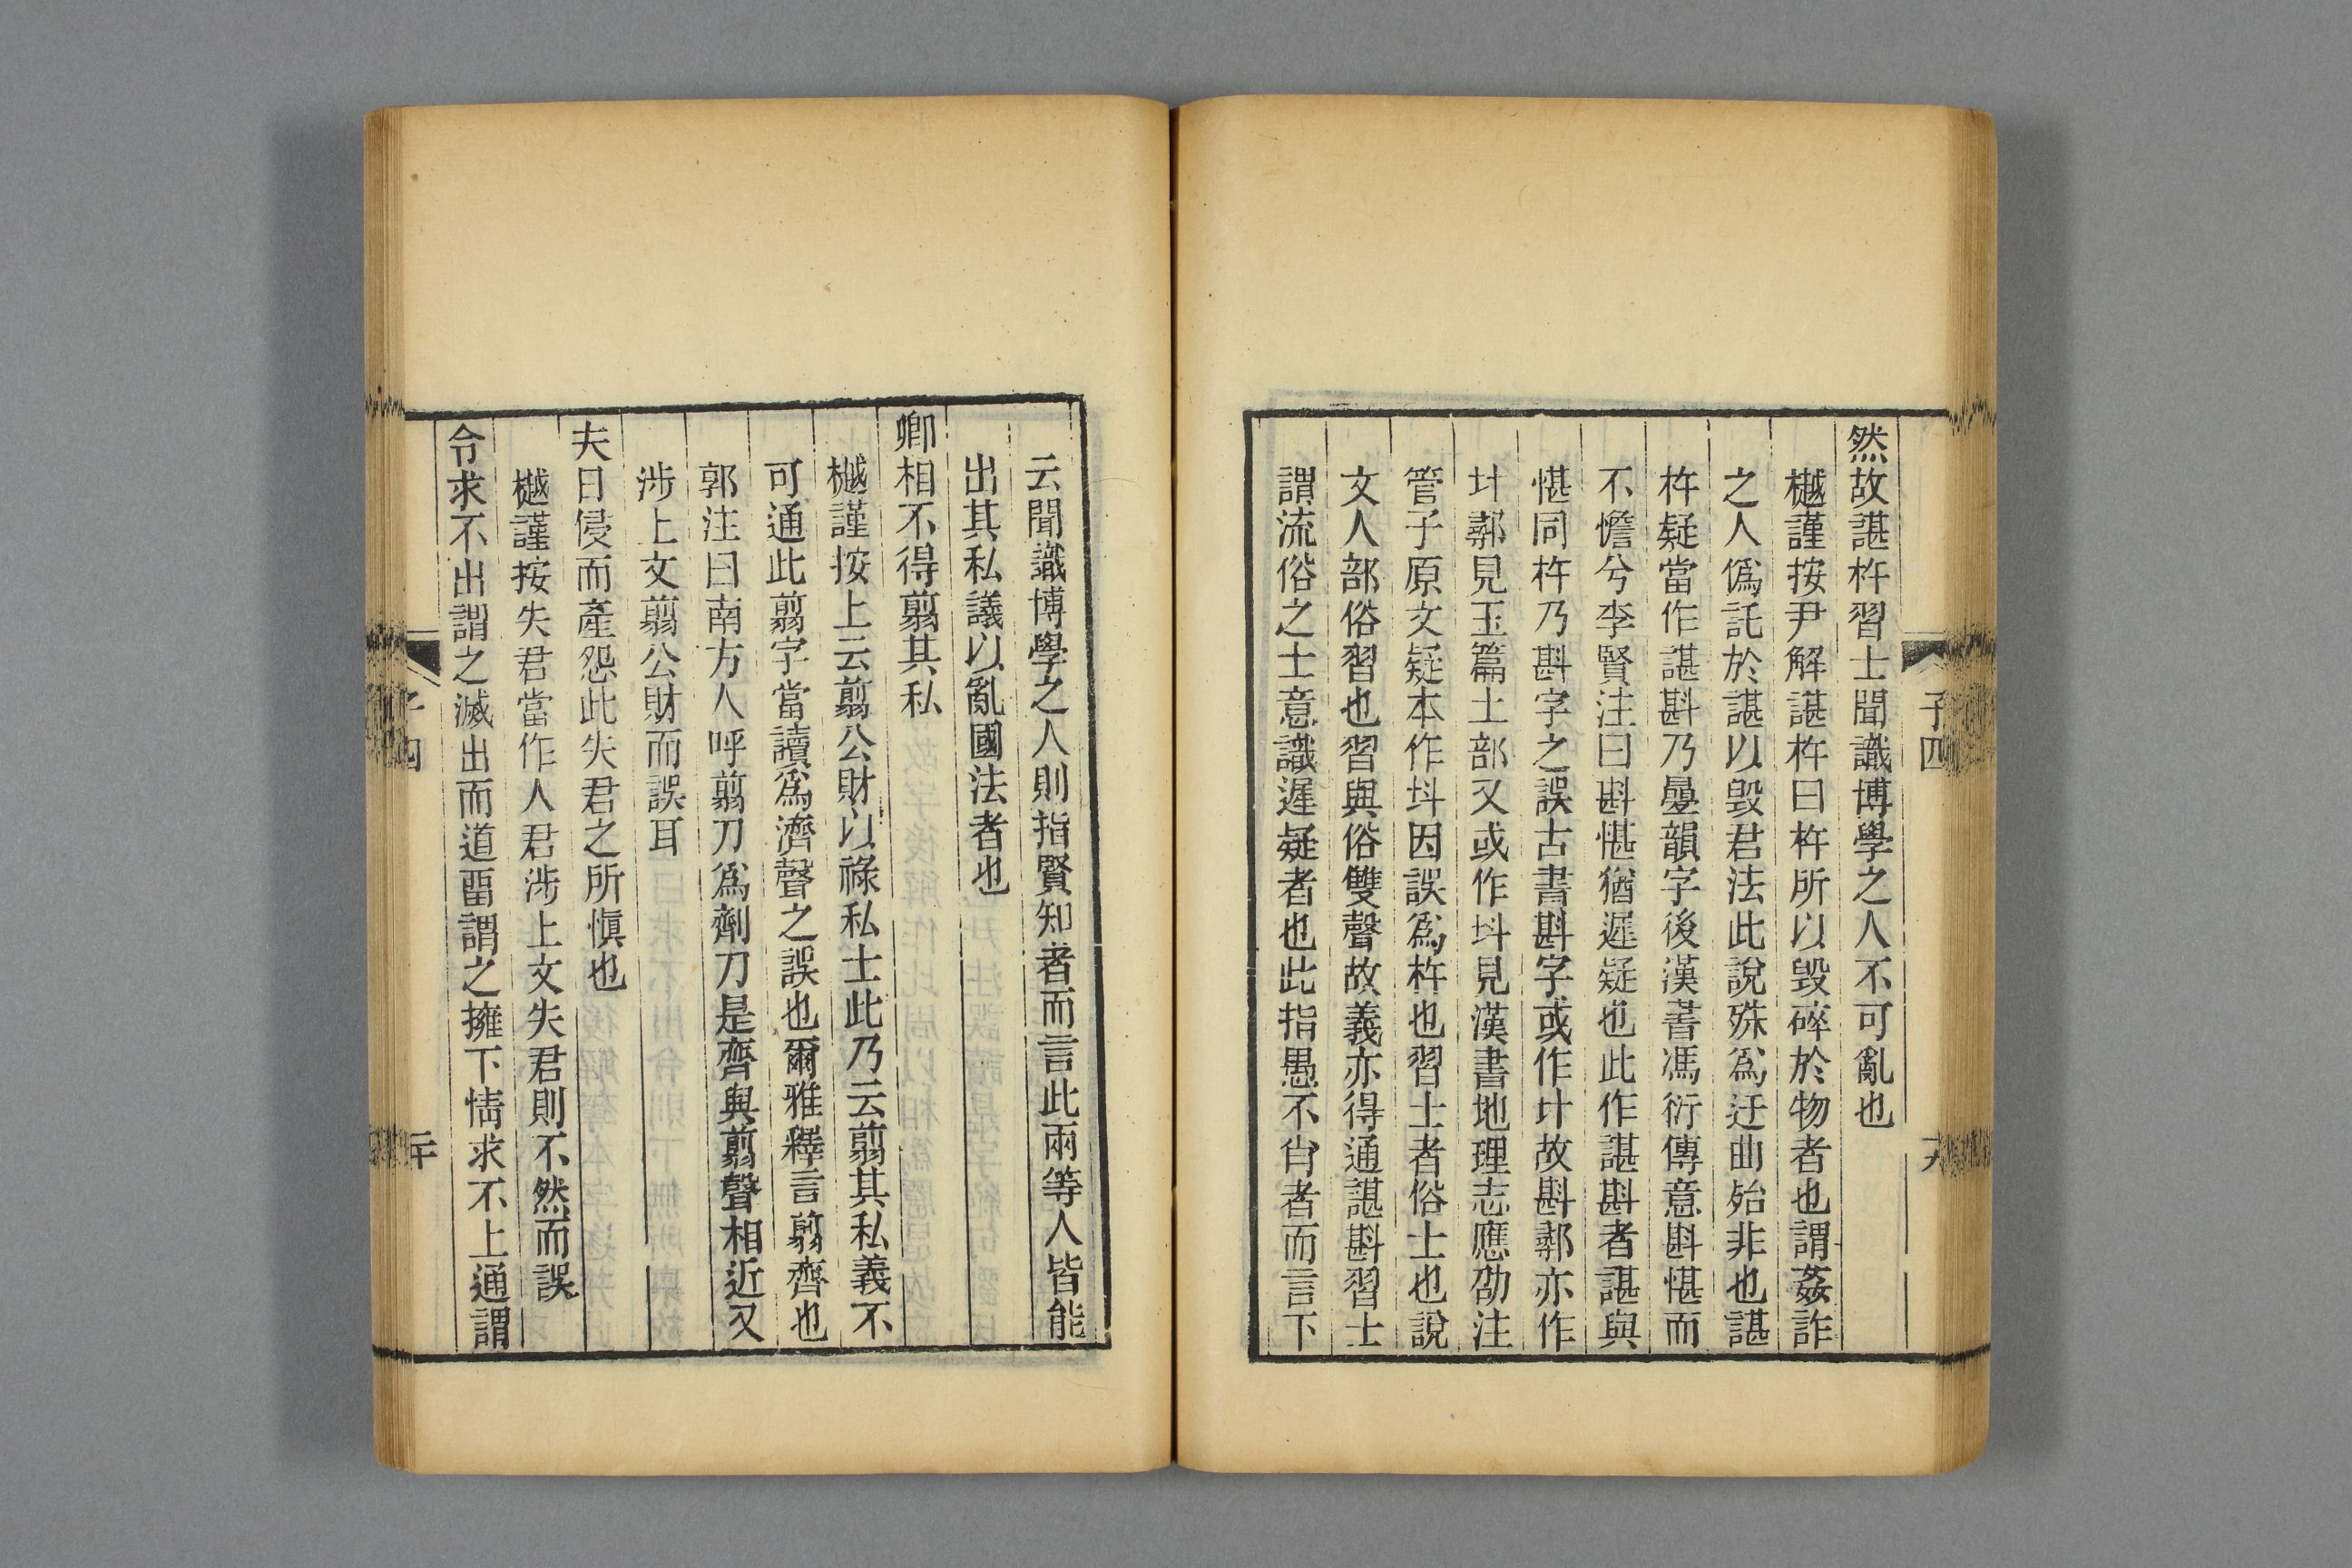 然故諶杵習士聞識博學之人不可亂也
樾謹按尹解諶杵曰杵所以毀碎於物者也謂姦詐
之人僞託於諶以毀君法此說殊爲迂曲殆非也諶
杵疑當作諶斟乃曡韻字後漢書馮衍傳意斟愖而
不憺兮李賢注曰斟愖猶遲疑也此作諶斟者諶與
愖同杵乃斟字之誤古書斟字或作㪷故斟鄩亦作
㪷鄩見玉篇土部又或作㪷見漢書地理志應劭注
管子原文疑本作㪷因誤爲杵也習士者俗士也說
文人部俗習也習與俗雙聲故義亦得通諶斟習士
謂流俗之士意識遲疑者也此指愚不肖者而言下
子四
云聞識博學之人則指賢知者而言此兩等人皆能
出其私議以亂國法者也
卿相不得翦其私
樾謹按上云翦公財以祿私士此乃云翦其私義不
可通此翦字當讀爲濟聲之誤也爾雅釋言翦齊也
郭注曰南方人呼翦刀爲劑刀是齊與翦聲相近又
涉上文翦公財而誤耳
夫日侵而產怨此失君之所愼也
樾謹按失君當作人君涉上文失君則不然而誤
令求不出謂之滅出而道畱謂之擁下情求不上通謂